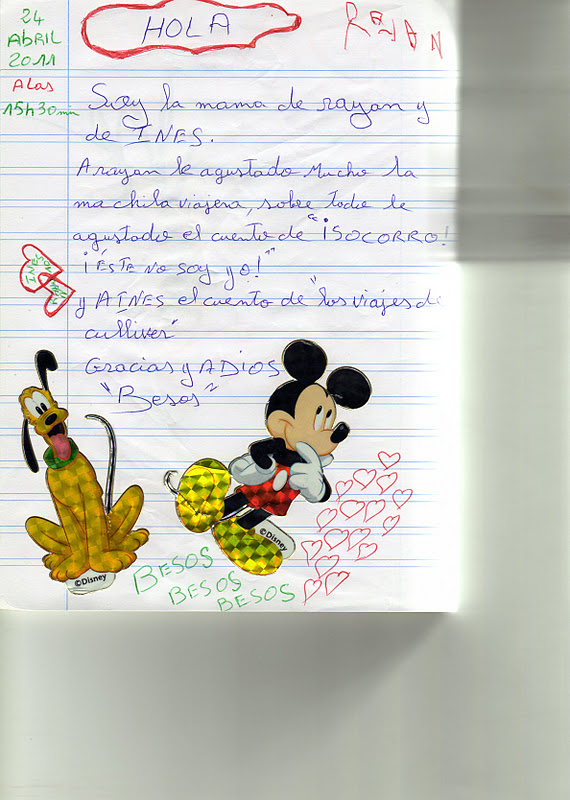 24
ABRIL
2011
A las
15h30min
HOLA
RAYAN
Soy la mama de rayan y
de INES.
A rayan le agustado Mucho la
machila viajera, sobre todo le
agustado el cuento de "¡SOCORRO!
¡ÉSTE NO SOY yo!"
y A INES el cuento de "los viajes de
culliver"
Gracias y ADIOS
"Besos"
INES
©Disney
©Disney
BESOS
BESOS
BESOS